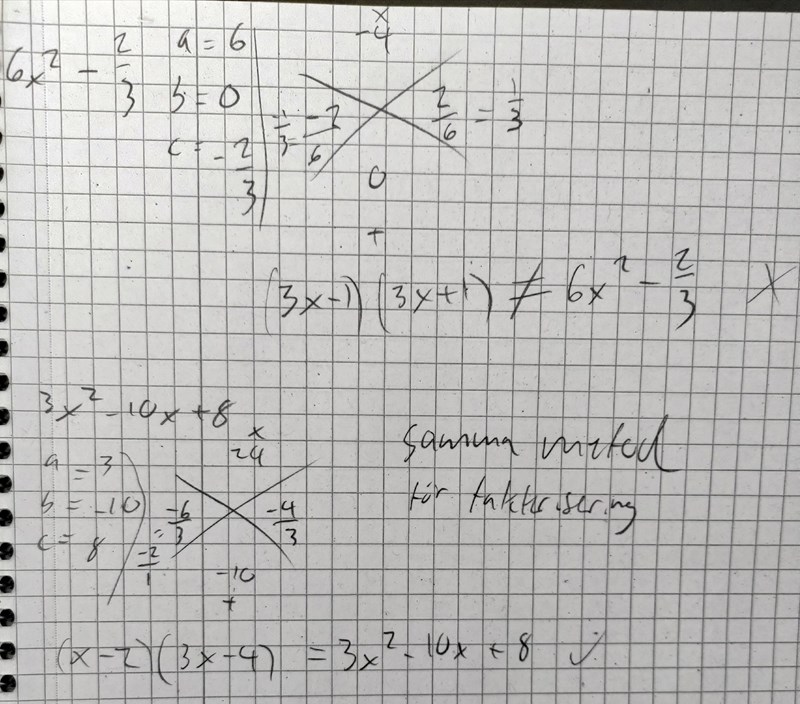 6x² - 2/3
a = 6
b = 0
c = -2/3
x
-4
1/3 = -2/6
2/6 = 1/3
0
+
(3x-1)(3x+1) ≠ 6x² - 2/3 X
3x² - 10x + 8
a = 3
b = -10
c = 8
x
24
-6/3 = -2/1
-4/3
-10
+
Samma metod
för faktorisering
(x-2)(3x-4) = 3x² - 10x + 8 ✓